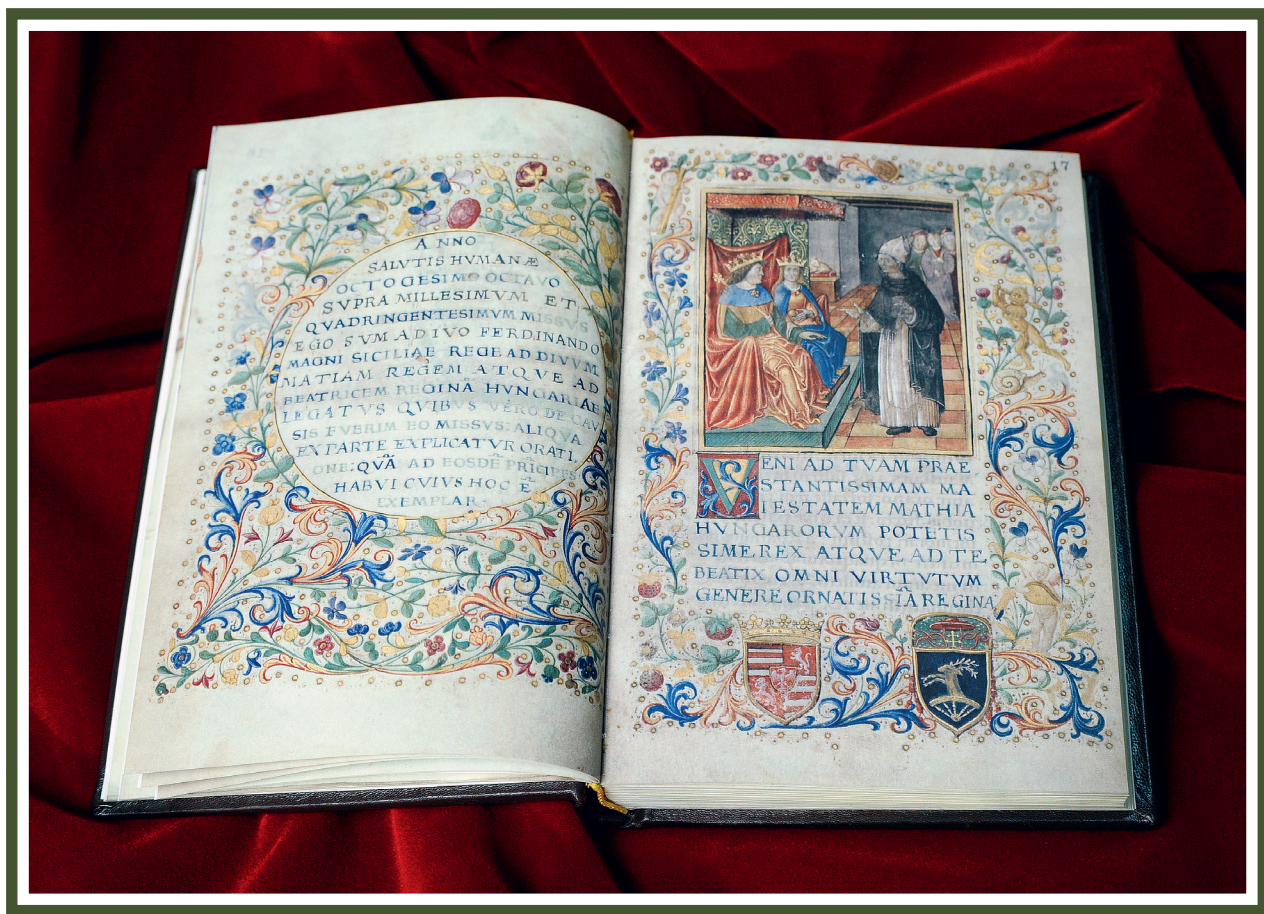 A NNO
SALVTIS HVMANÆ
OCTOGESIMO OCTAVO
SVPRA MILLESIMVM ET
QVADRINGENTESIMVM MISSVS
EGO SVM AD IVO FERDINANDO
MAGNI SICILIAE REGE AD DIVVM
MATIAM REGEM ATQVE AD
BEATRICEM REGINĀ HVNGARIAE
LEGATVS QVIBVS VERO DE CAV
SIS FVERIM EO MISSVS: ALIQVA
EX PARTE EXPLICATVR ORATI
ONE: QVĀ AD EOSDĒ PRĪCIPES
HABVI CVIVS HOC Ē
EXEMPLAR
17
VENI AD TVAM PRAE
STANTISSIMAM MA
IESTATEM MATHIA
HVNGARORVM POTETIS
SIME REX ATQVE AD TE
BEATIX OMNI VIRTVTVM
GENERE ORNATISSIĀ REGINA